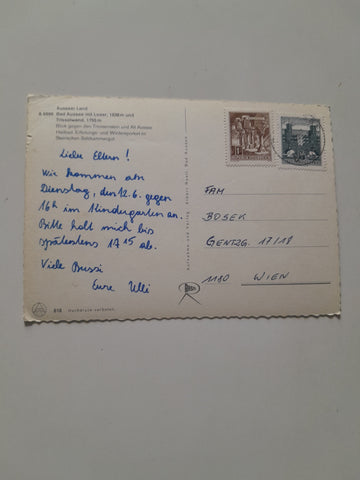 Ausseer Land
Bad Aussee mit Loser, 1838 m und
Trisselwand, 1755 m
Blick gegen den Tressenstein und Alt Aussee
Heilbad, Erholungs- und Wintersportort im
Steirischen Salzkammergut
Liebe Eltern!
Wir kommen am
Dienstag, den 12.6. gegen
16h im Kindergarten an.
Bitte holt mich bis
spätestens 17 15 ab.
Viele Bussi
Eure Ulli
FAM
BOSEK
GENTZG. 17/18
1180 WIEN
818 Nachdruck verboten.